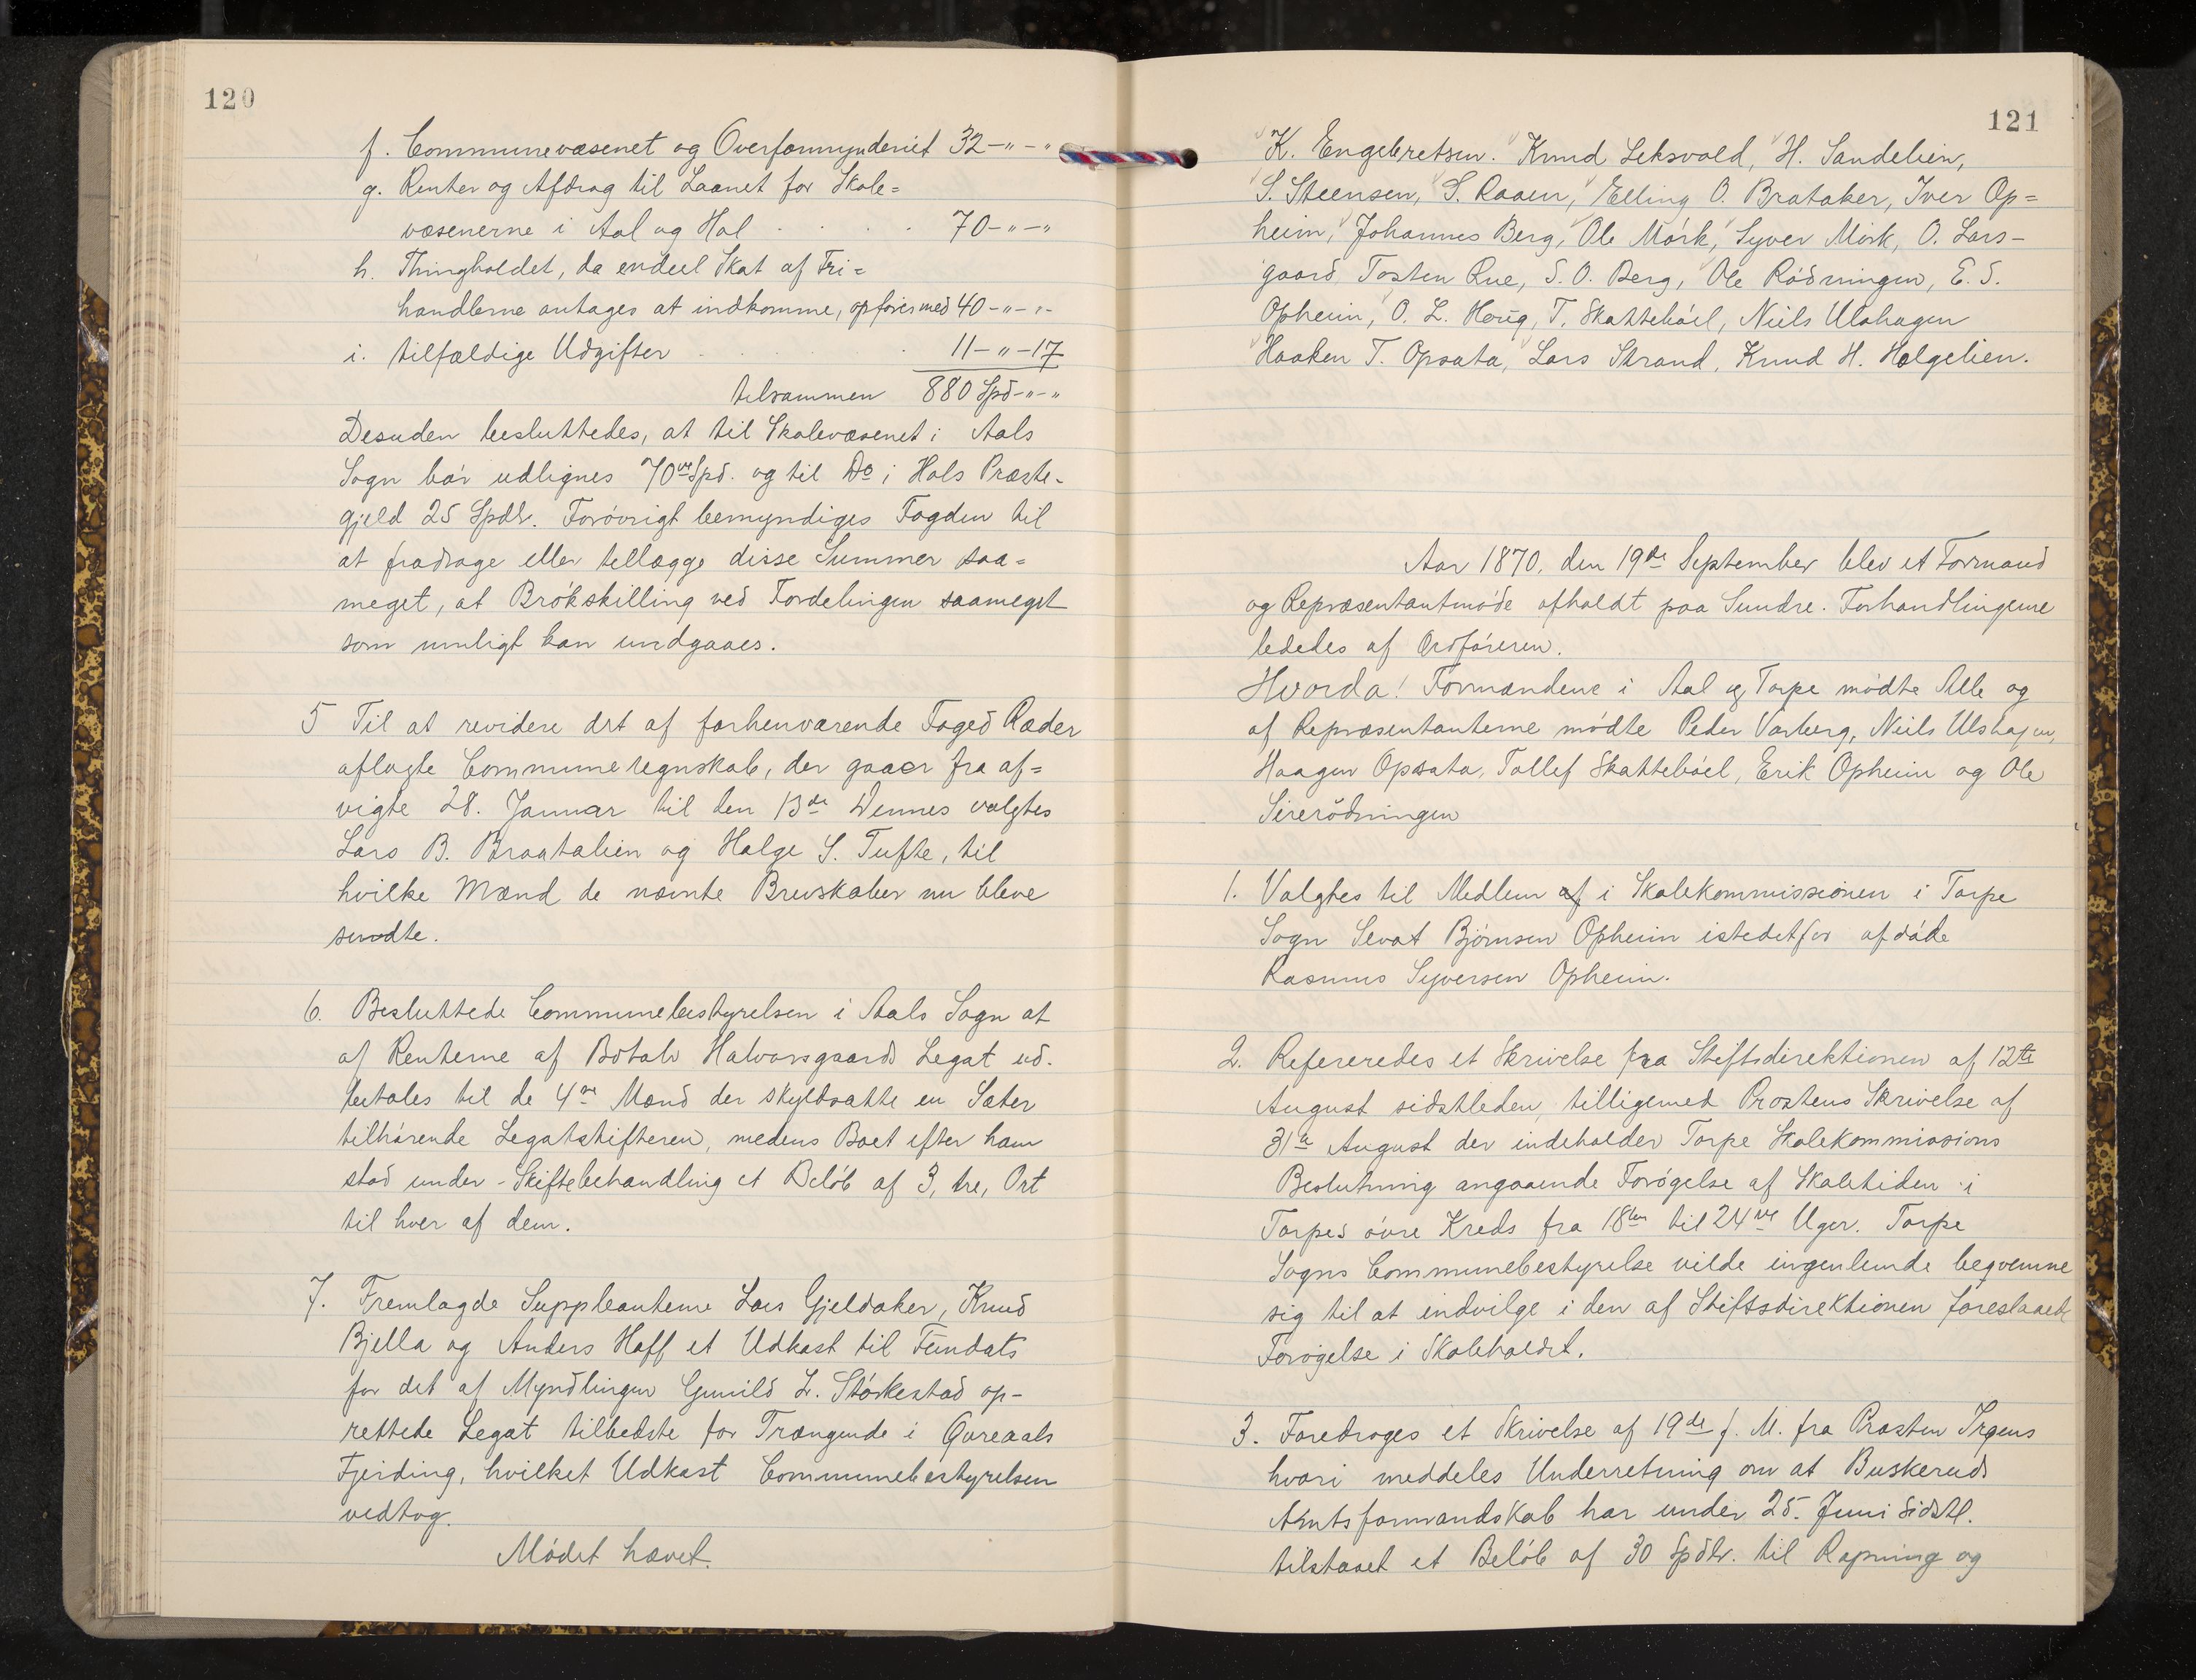 120
f. Communevæsenet og Overformynderiet 32 - " - "
g. Renter og Afdrag til Laanet for Skole=
væsenerne i Aal og Hol . . . . 70 - " - "
h. Thingholdet, da endeel Skat af Fri=
handlerne antages at indkomme, opføres med 40 - " - "
i. tilfældige Udgifter . . . 11 - " - 17
tilsammen 880 Spd - " - "
Desuden besluttedes, at til Skolevæsenet i Aals
Sogn bør udlignes 70ve Spd. og til Do i Hols Præste-
gjeld 25 Spdlr. Forøvrigt bemyndiges Fogden til
at fradrage eller tellægge disse Summer saa=
meget, at Brøkskilling ved Fordelingen saameget
som muligt kan undgaaes.
5 Til at revidere det af forhenværende Foged Ræder
aflagte Communeregnskab, der gaaer fra af=
vigte 28. Januar til den 13de Dennes valgtes
Lars B. Braatalien og Helge S. Tufte, til
hvilke Mænd de nævnte Brevskaber nu bleve
sendte.
6. Besluttede Communebestyrelsen i Aals Sogn at
af Renterne af Botolv Halvorsgaards Legat ud-
betales til de 4re Mænd der skyldsatte en Sæter
tilhørende Legatstifteren, medens Boet efter ham
stod under Skiftebehandling et Beløb af 3, tre, Ort
til hver af dem.
7. Fremlagde Suppleanterne Lars Gjeldaker, Knud
Bjella og Anders Hoff et Udkast til Fundats
for det af Myndlingen Gunild L. Størkestad op-
rettede Legat tilbedste for Trængende i Øvreaals
Fjerding, hvilket Udkast Communebestyrelsen
vedtog.
Mødet hævet.
121
K. Engebretsen. Knud Leksvold, H. Sandelien,
S. Steensen, S. Raaen, Elling O. Brataker, Iver Op=
heim, Johannes Berg, Ole Mørk, Syver Mørk, O. Lars-
gaard, Tosten Rue, S. O. Berg, Ole Rødningen, E. S.
Opheim, O. L. Houg, T. Skattebøel, Niels Ulshagen
Haaken T. Opsata, Lars Strand, Knud H. Helgelien.
Aar 1870, den 19de September blev et Formand
og Repræsentantmøde afholdt paa Sundre. Forhandlingerne
lededes af Ordføreren.
Hvorda! Formændene i Aal og Torpe mødte Alle og
af Repræsentanterne mødte Peder Varberg, Niels Ulshagen,
Haagen Opsata, Tollef Skattebøel, Erik Opheim og Ole
Sirerødningen
1. Valgtes til Medlem af i Skolekommissionen i Torpe
Sogn Sevat Bjørnsen Opheim istedetfor afdøde
Rasmus Syversen Opheim.
2. Refereredes et Skrivelse fra Stiftsdirektionen af 12te
August sidstleden, tilligemed Provstens Skrivelse af
31te August der indeholder Torpe Skolekommissions
Beslutning angaaende Forøgelse af Skoletiden i
Torpes øvre Kreds fra 18ten til 24ve Uger. Torpe
Sogns Communebestyrelse vilde ingenlunde beqvemme
sig til at indvilge i den af Stiftsdirektionen foreslaaede
Forøgelse i Skoleholdet.
3. Foredroges et Skrivelse af 19de f. M. fra Provsten Irgens
hvori meddeles Underretning om at Buskeruds
Amtsformandskab har under 25. Juni sidstl.
tilstaaet et Beløb af 30 Spdlr. til Rapning og